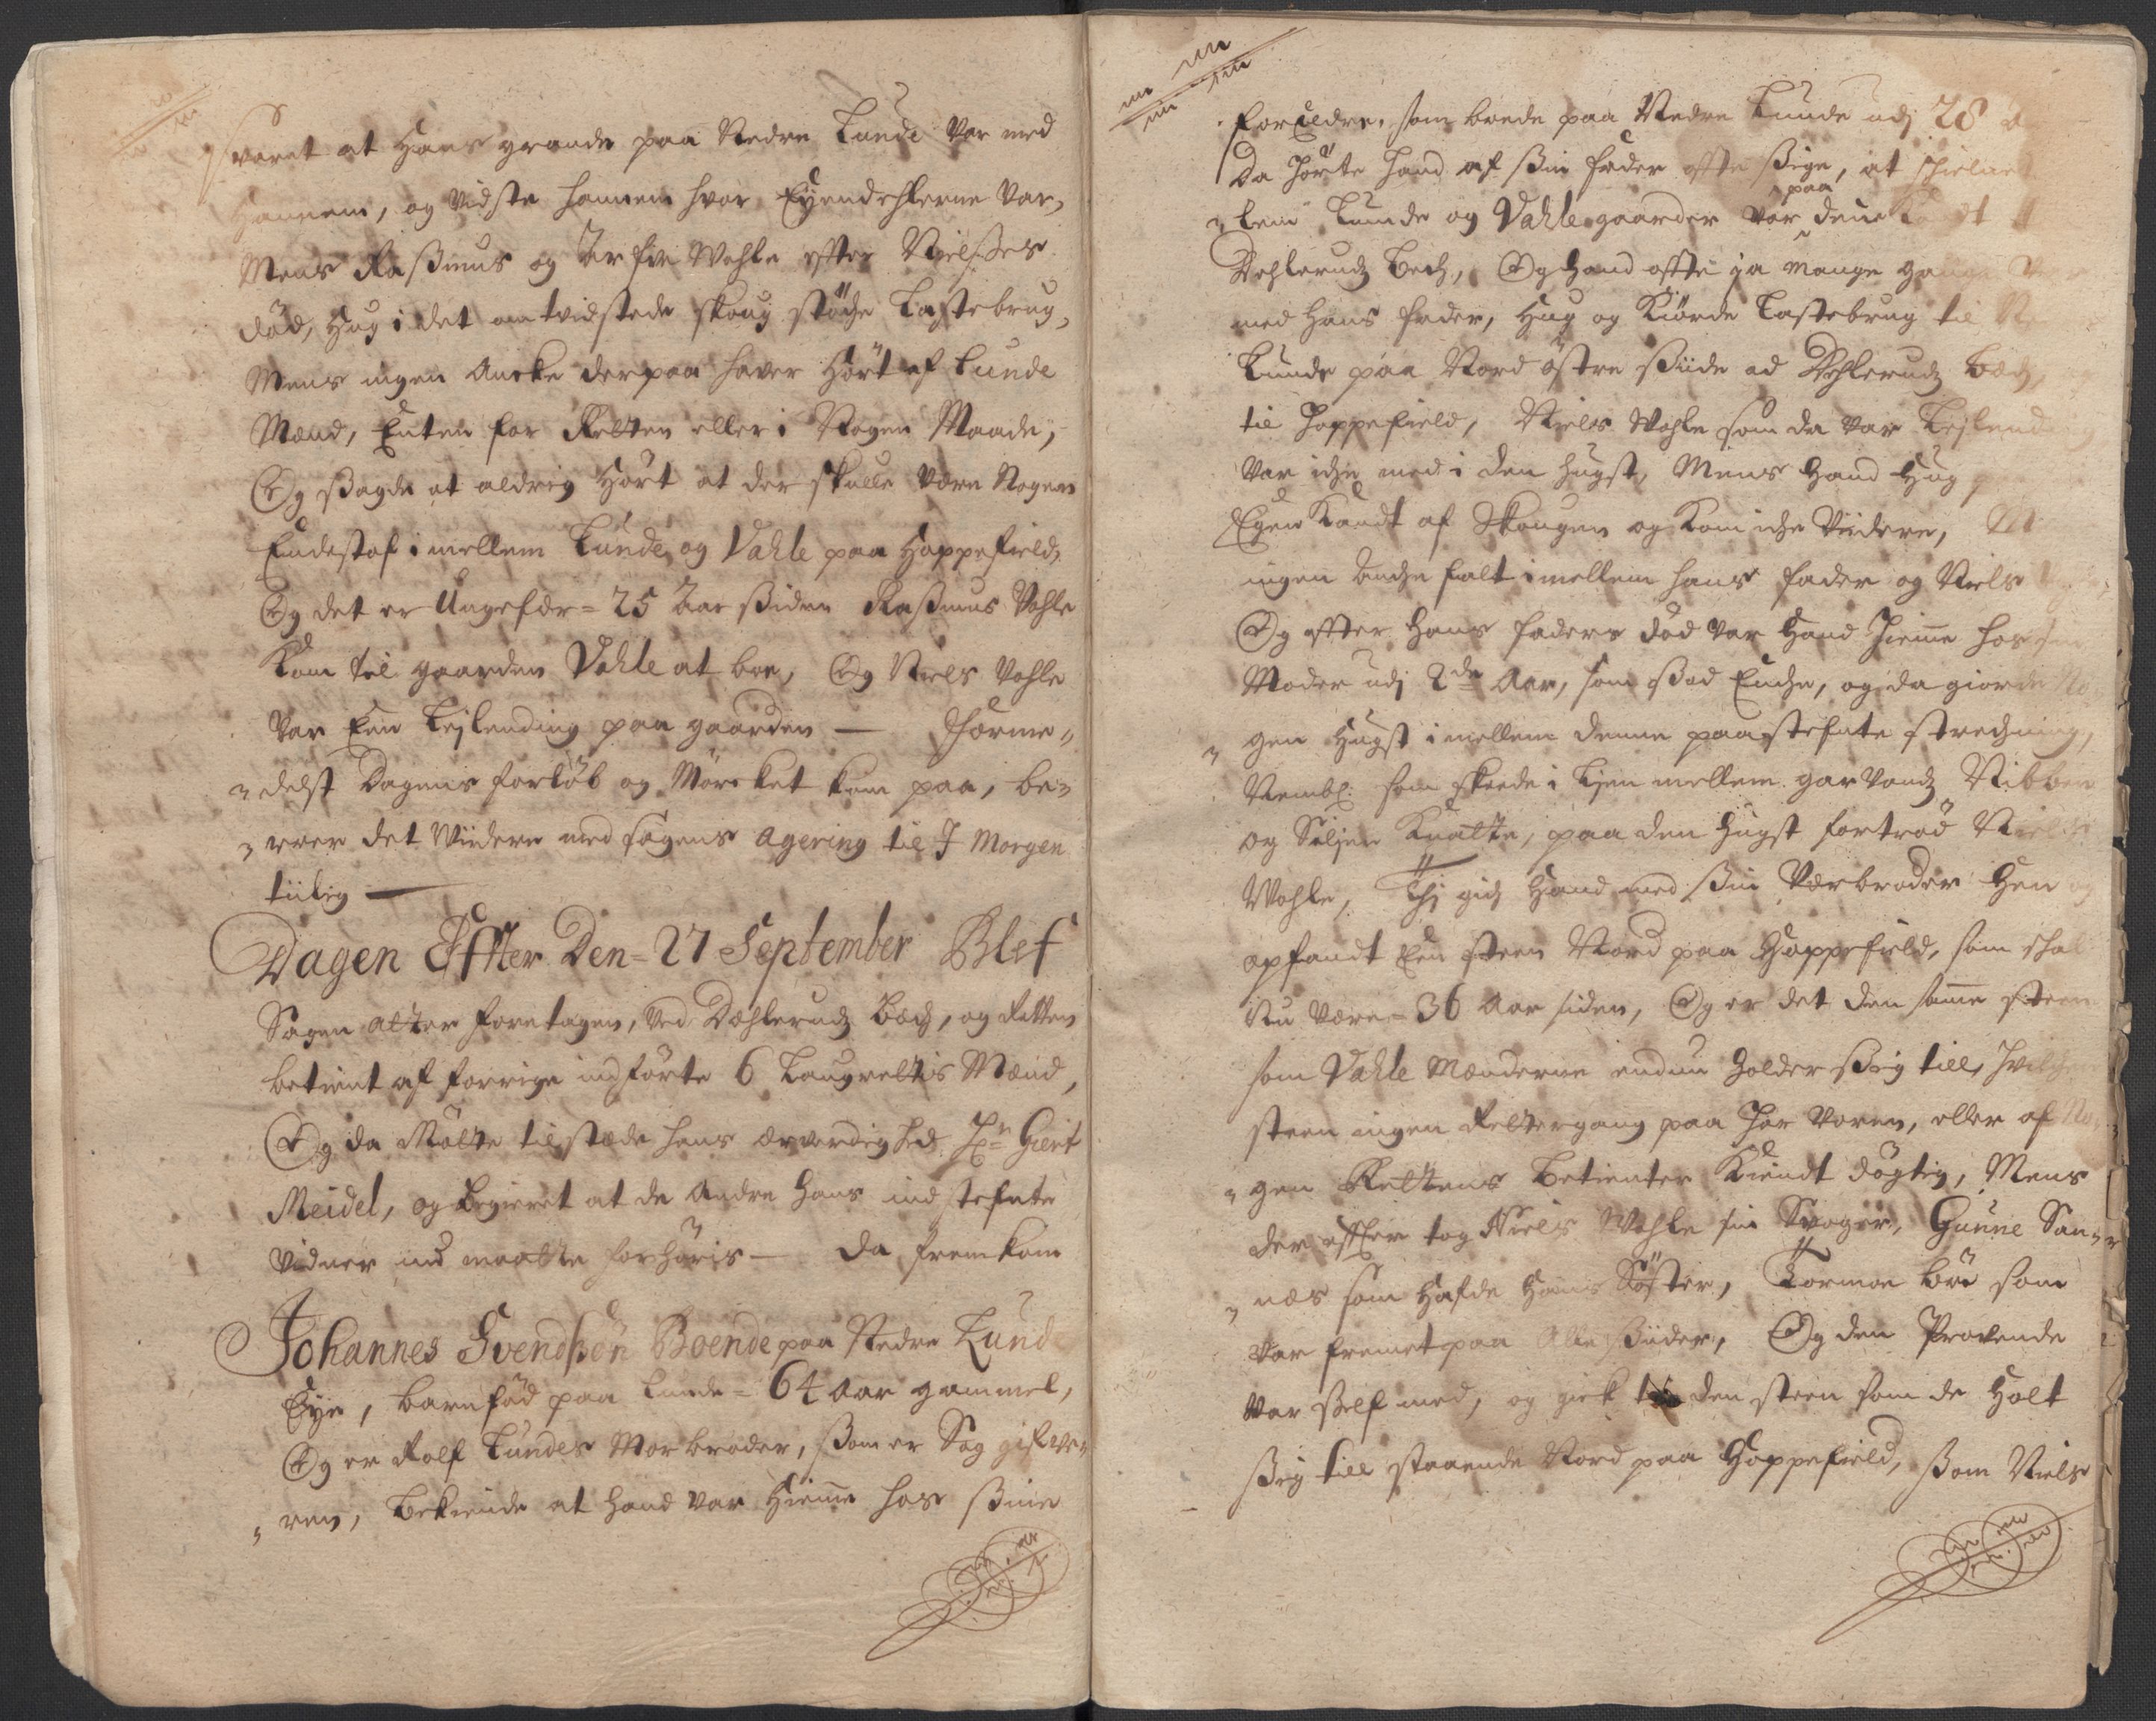 svaret at Hans grande paa Nedre Lunde var med
Hannem, og vidste hannem hvor Eyendehlerne var,
Mens Rasmus og Arfve Wahle efter Nielses
död, Hug i det omtvistede skoug støche Lastebrug,
Mens ingen Ancke derpaa haver Hört af Lunde
Mænd, Enten for Retten eller i Nogen Maade,
Og sagde at aldrig Hört at der skulle være Nogen
Endestaf imellem Lunde og Vahle paa Hoppefield,
Og det er Ungefær = 25 Aar siden Rasmus Vahle
Kom til gaarden Vahle at boe, Og Niels Vahle
var Een Leylending paa gaarden — Forme„
„delst Dagens forlöb og Mörcket kom paa, be„
„roer det Viidere med sagens Agering til I Morgen
tiilig —
Dagen Effter Den = 27 September Blef
Sagen atter foretagen, ved Dæhlerudz Bech, og Retten
betient af forrige indförte 6 Laugrettis Mænd,
Og da Mötte tilstæde hans ærværdighed Hr Giert
Meidel, og begieret at de Andre Hans indstefnte
vidner ind maatte forhöris — da fremkom
Johannes Svendsön Boende paa Nedre Lunde
Eye, barnföd paa Lunde = 64 Aar gammel,
Og er Rolf Lundes Morbroder, som er Sag gifve„
„ren, Bekiende at Hand var Hieme hos sine
forældre, som boede paa Nedre Lunde udj 28
Da Hörte Hand af sin fader offte sige, at schielnet
„lem Lunde og Vahle gaarder var paa dene
Dehlerudz Bech, Og Hand offte ja mange gange
med Hans fader, Hug og Kiörde Lastebrug til
Lunde paa Nord östre siide ad Dehlerudz Bech,
til Hoppefield, Niels Wahle som da var Leylending
var iche med i den Hugst, Mens Hand Hug
Egen Kandt af Skougen og Kom iche Viidere,
ingen Anche falt imellem hans fader og Niels
Og effter Hans faders död var Hand Hieme hos sin
Moder udj 2de Aar, som sad Enche, og da giorde No
„gen Hugst imellem denne paastefnte strechning,
Nembl: som skeede i Lien mellem garvandz Nibben
og Siljen Knatte, paa den Hugst fortröd Niels
Wahle, Thj gich Hand med sin Værbroder Hen og
opfandt Een steen Nord paa Hoppefield, som schal
Nu være = 36 Aar siden, Og er det den same steen
som Vahle Mænderne endnu Holder sig till, Hvilchen
steen ingen Rettergang paa Har voren, eller af No
„gen Rettens Betienter Kiendt dögtig, Mens
der effter tog Niels Wahle sin Svoger, Gunne San„
„næs som Hafde Hans Söster, Tormoe Böe som
var fremet paa Alle siider, Og den Provende
var self med, og gick til den steen som de Holt
sig till staaende Nord paa Hoppefield, som Niels